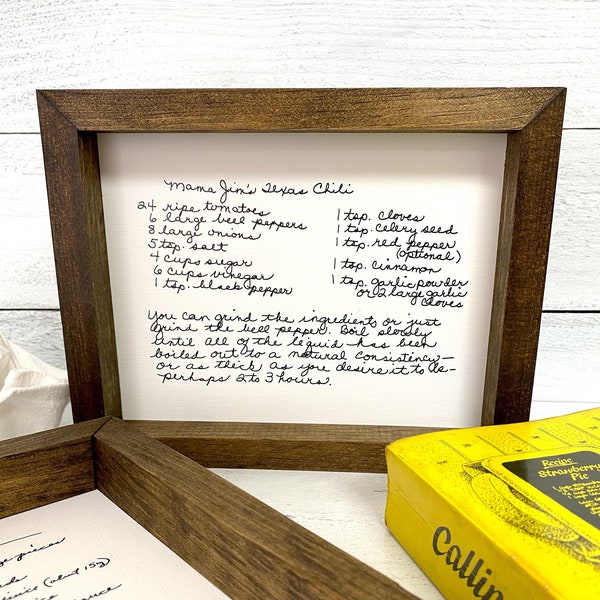 Mama Jim's Texas Chili
24 ripe tomatoes
6 large beel peppers
8 large onions
5 tsp. salt
4 cups sugar
6 cups vinegar
1 tsp. black pepper
1 tsp. cloves
1 tsp. celery seed
1 tsp. red pepper
(optional)
1 tsp. cinnamon
1 tsp. garlic powder
or 2 large garlic
cloves
You can grind the ingredients or just
grind the bell pepper. Boil slowly
until all of the liquid has been
boiled out to a natural consistency—
or as thick as you desire it to be-
perhaps 2 to 3 hours.
Recipe
Strawberry
Pie
Callin